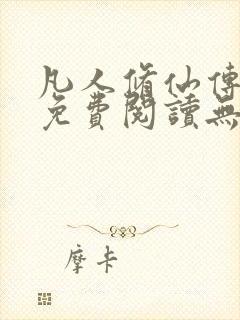 凡人脩仙傳
免費閱讀無
摩卡